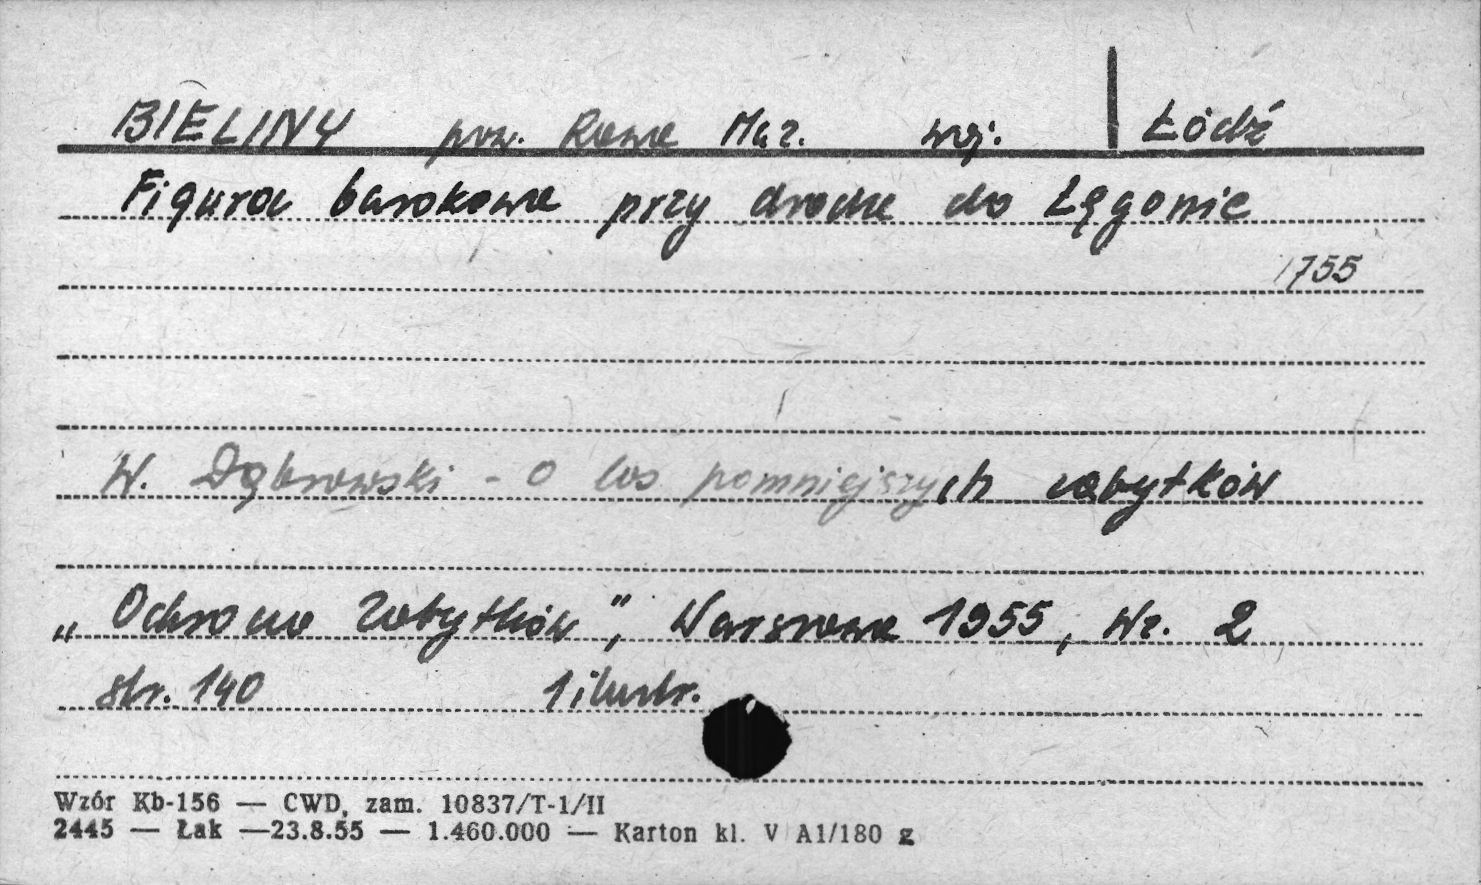 BIELINY pow. Rawa Maz. woj. Łódź
Figura barokowa przy drodze do Łęgonic
1755
W. Dąbrowski - O los pomniejszych zabytków
„Ochrona Zabytków", Warszawa 1955, Nr. 2
str. 140 1 ilustr.
Wzór Kb-156 — CWD, zam. 10837/T-1/II
2445 — Łak —23.8.55 — 1.460.000 — Karton kl. V A1/180 g